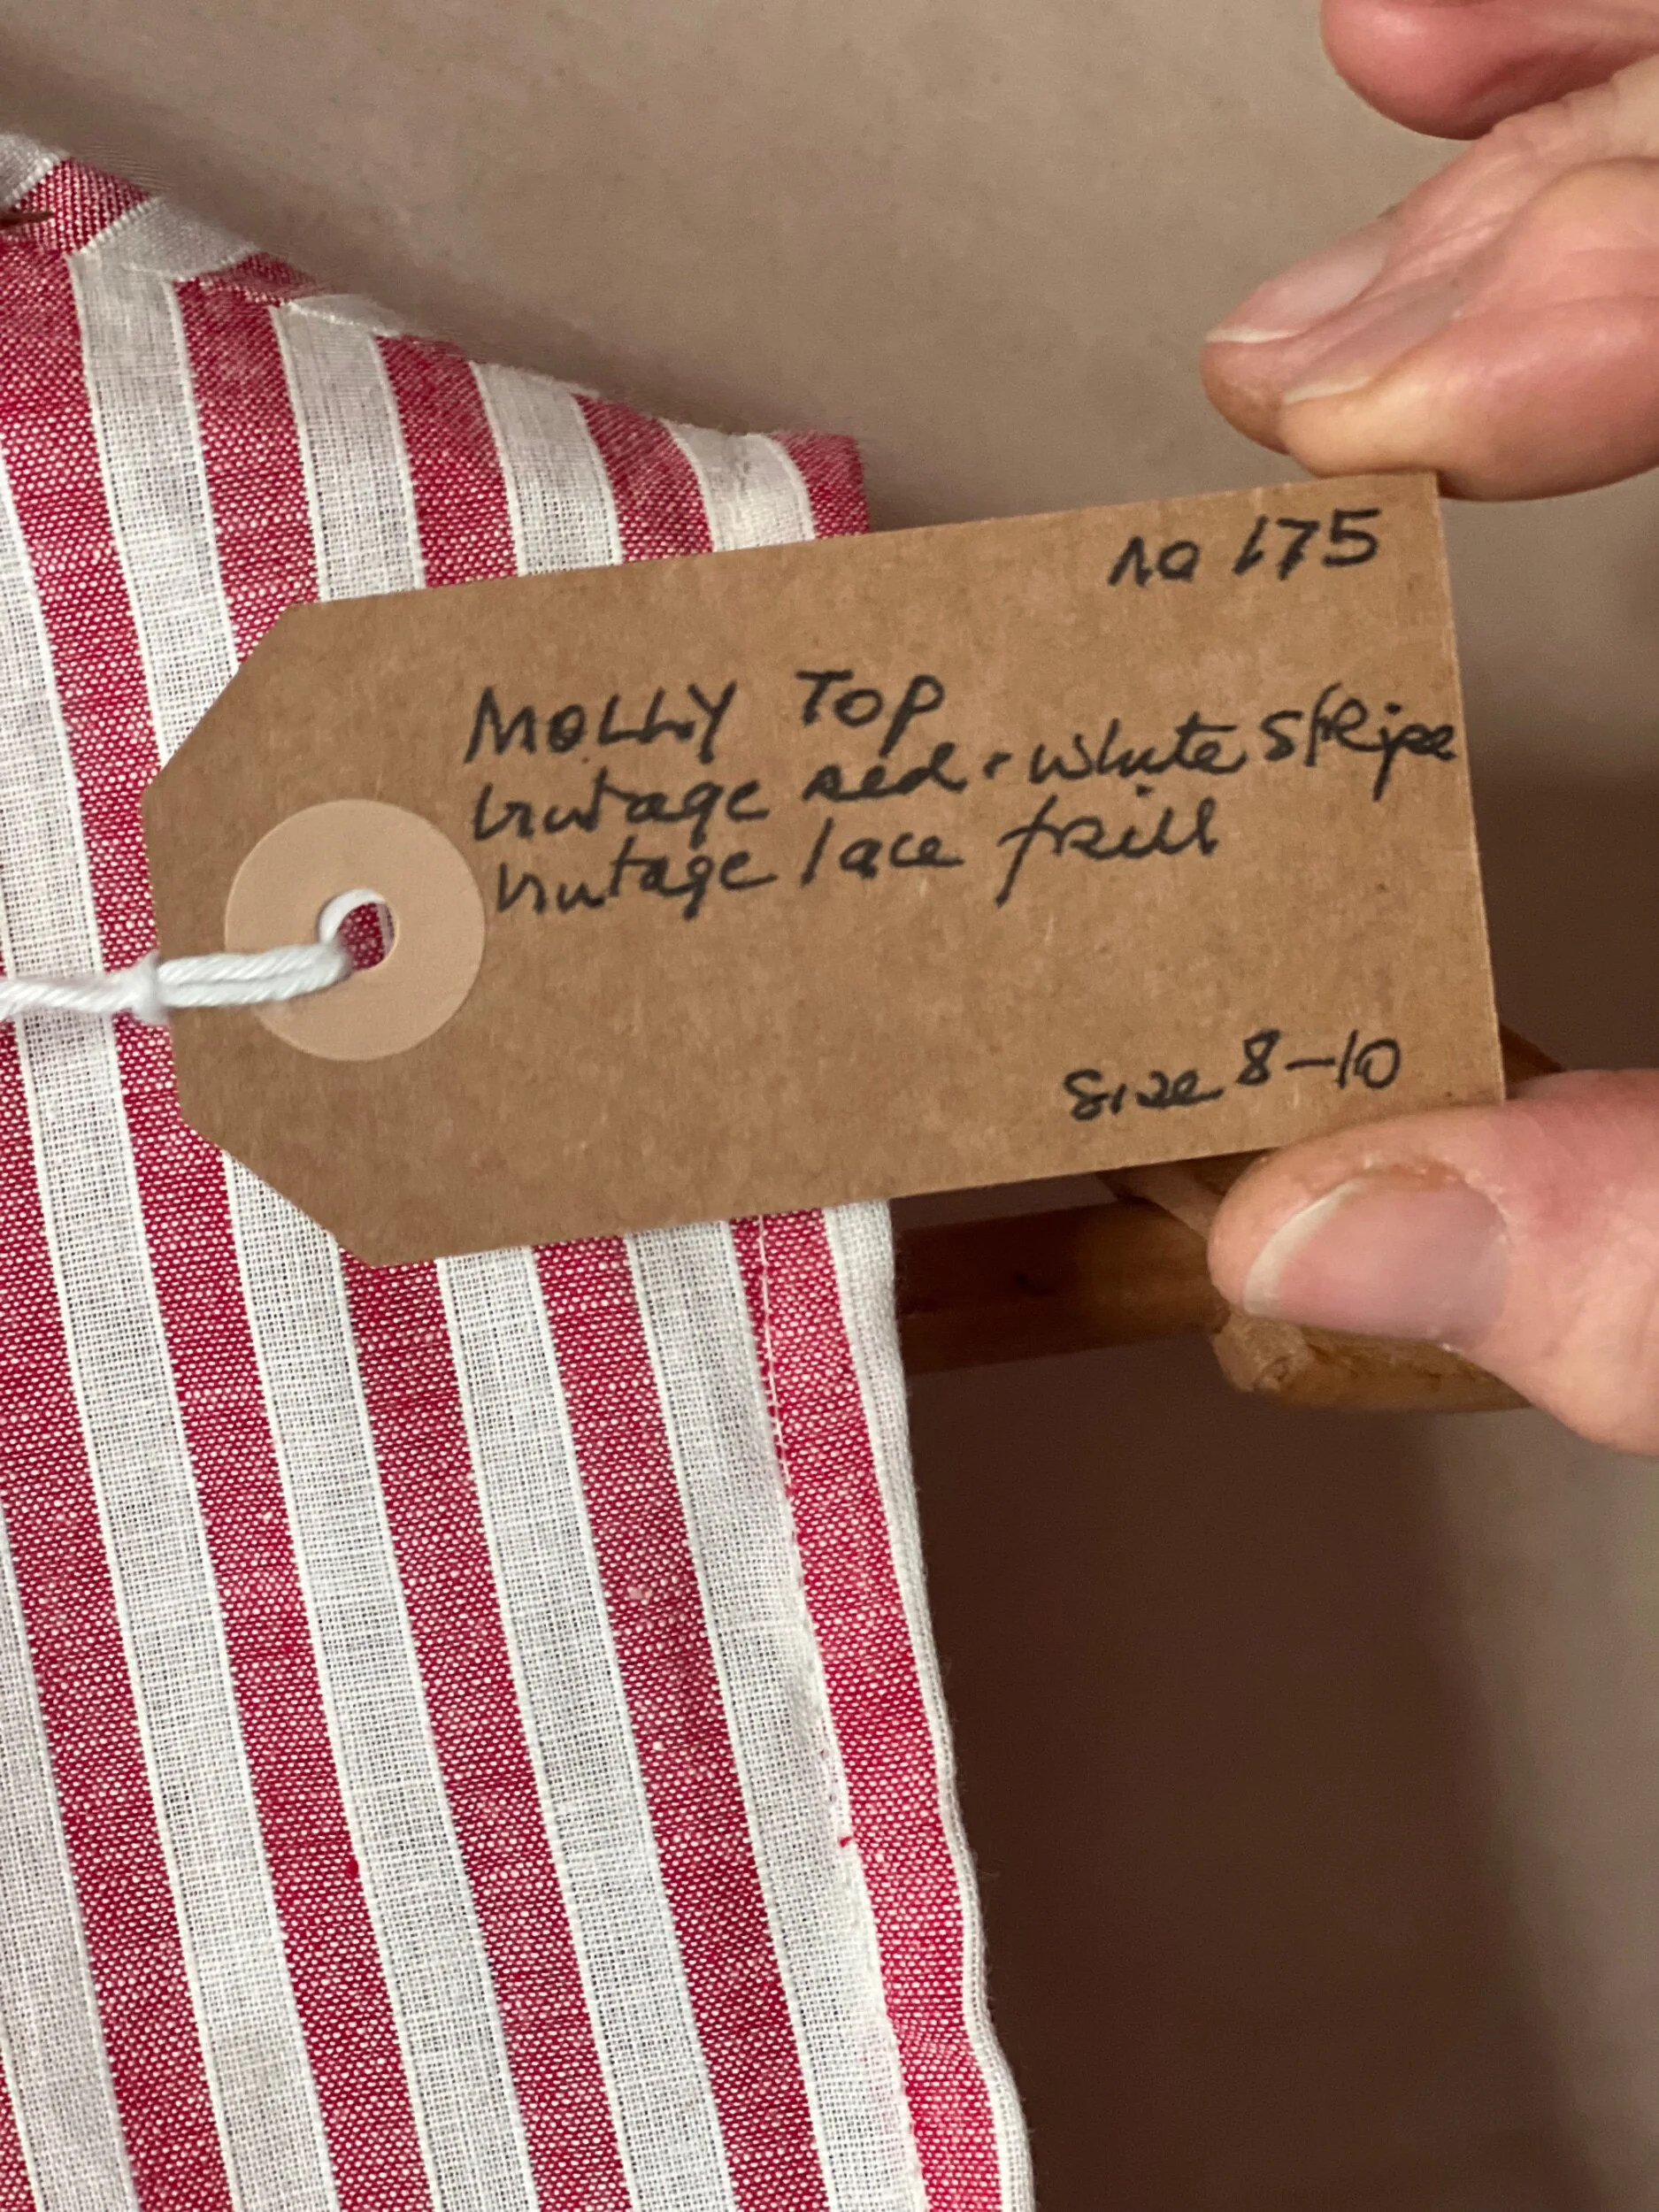 no 175
MOLLY TOP
vintage red + white stripe
vintage lace frill
size 8-10